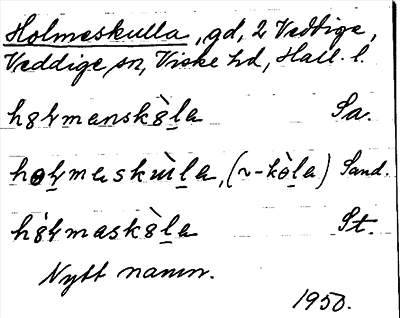 Holmeskulla, gd, 2 Veddige,
Veddige sn, Viske hd, Hall. l.
hɞɫmanskɞ̀la Sa.
hoɫmaskùla, (~-kòla) Sand.
hɞ́ɫmaskɞ̀la St.
Nytt namn.
1950.